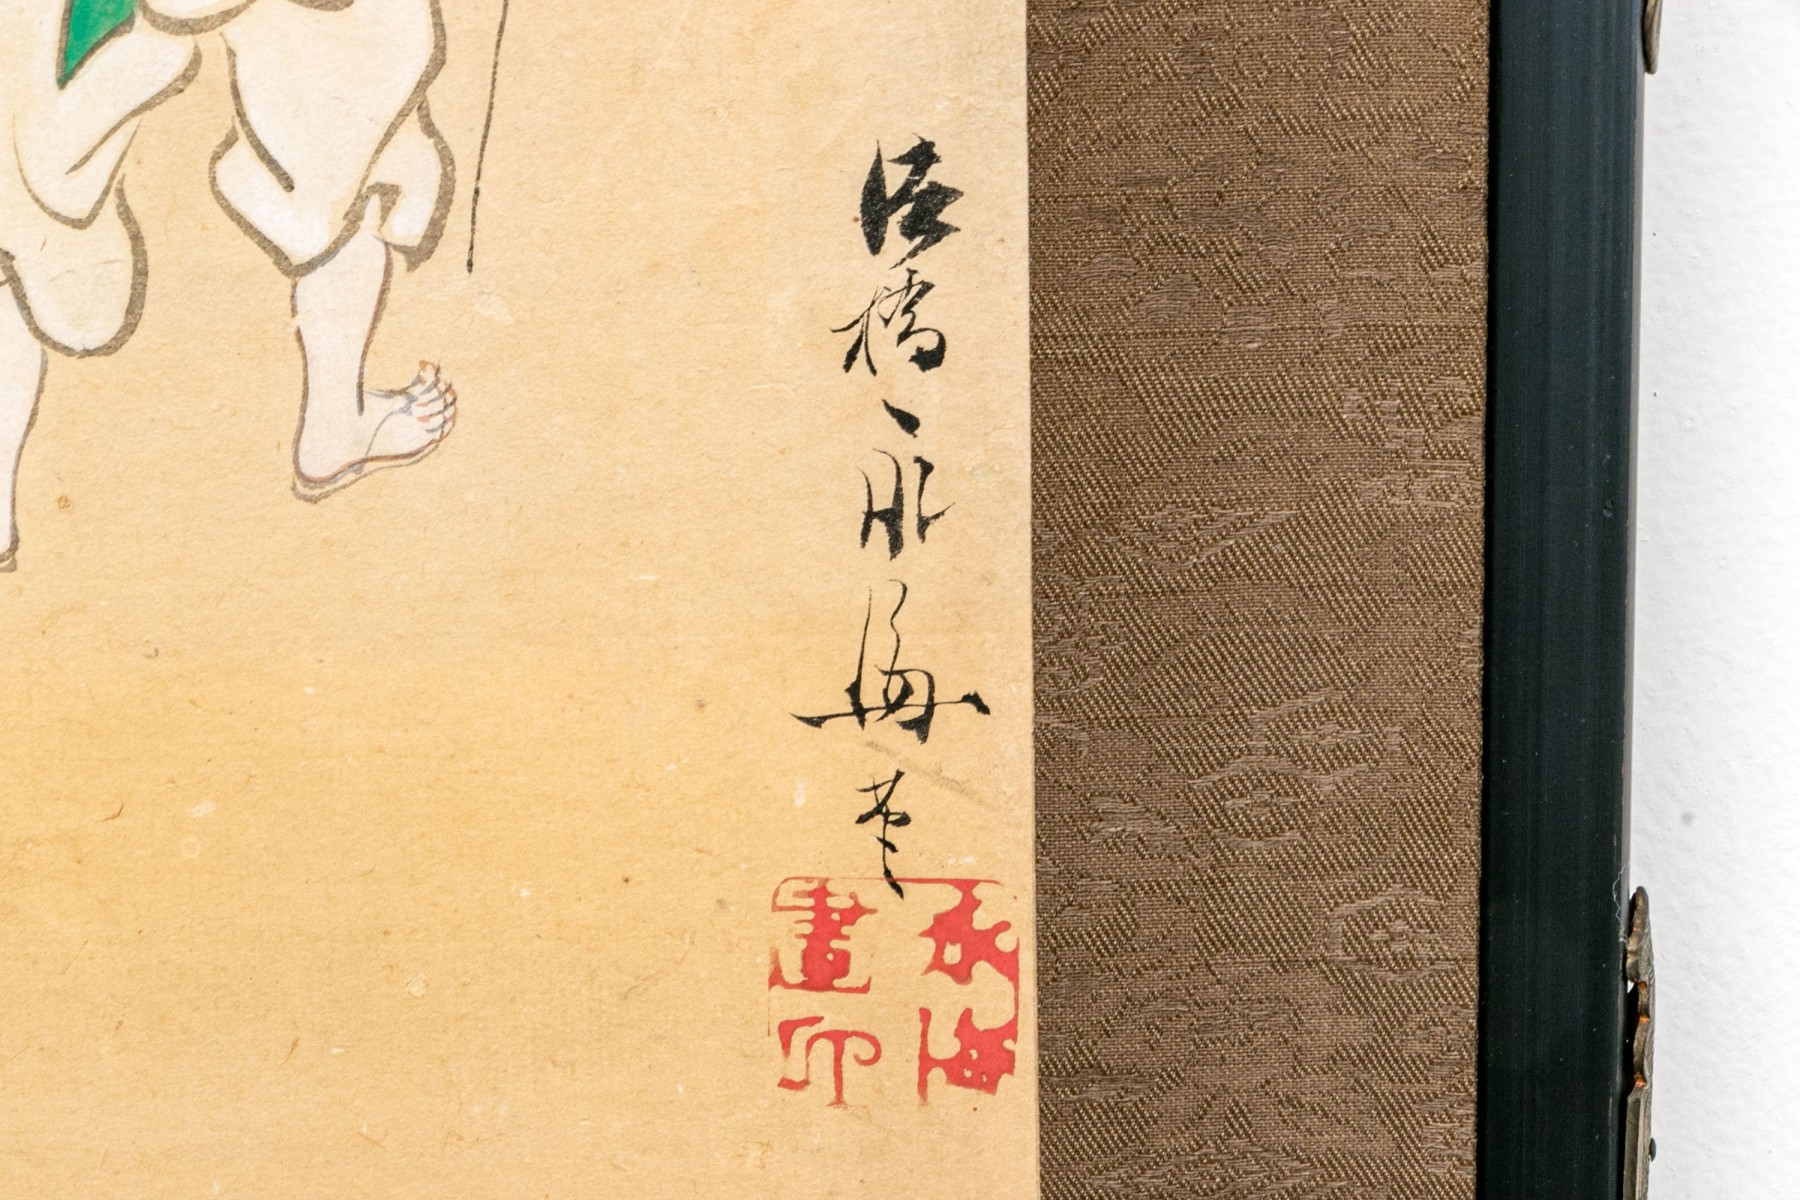 法橋永海筆
永海
畫印